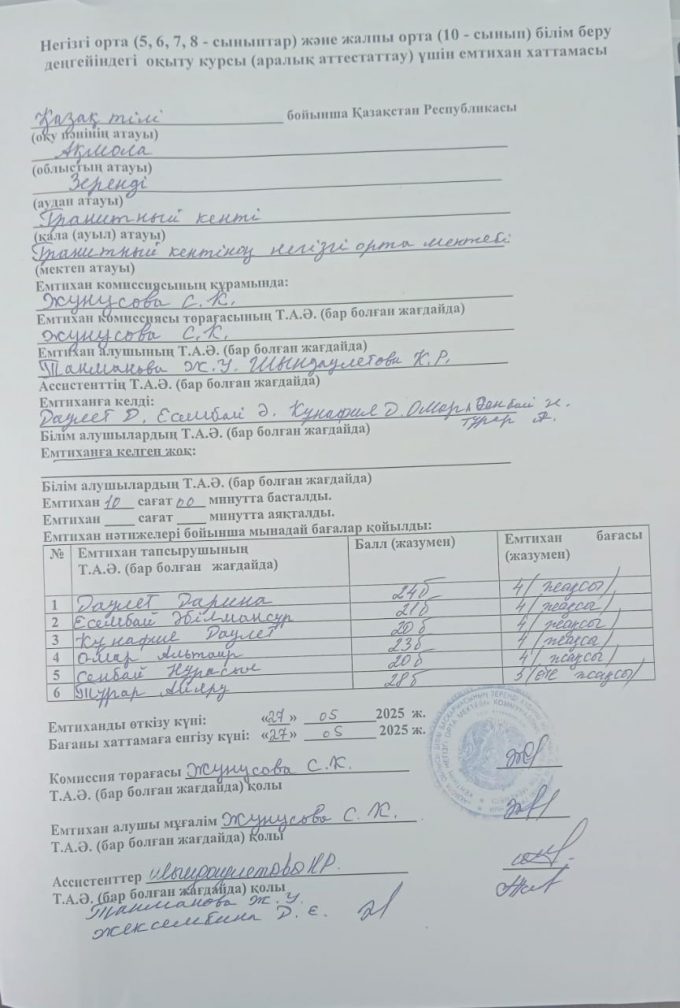 Негізгі орта (5, 6, 7, 8 - сыныптар) және жалпы орта (10 - сынып) білім беру
деңгейіндегі оқыту курсы (аралық аттестаттау) үшін емтихан хаттамасы
Қазақ тілі бойынша Қазақстан Республикасы
(оқу пәнінің атауы)
Ақмола
(облыстың атауы)
Зеренді
(аудан атауы)
Гранитный кенті
(қала (ауыл) атауы)
Гранитный кентінің негізгі орта мектебі
(мектеп атауы)
Емтихан комиссиясының құрамында:
Жунусова С.К.
Емтихан комиссиясы төрағасының Т.А.Ә. (бар болған жағдайда)
Жунусова С.К.
Емтихан алушының Т.А.Ә. (бар болған жағдайда)
Танманова Ж.У. Шындаулетова К.Р.
Ассистенттің Т.А.Ә. (бар болған жағдайда)
Емтиханға келді:
Даулет Д, Есембай Ә. Кунафие Д. Омар А Сенбай Н.
Турар А.
Білім алушылардың Т.А.Ә. (бар болған жағдайда)
Емтиханға келген жоқ:
Білім алушылардың Т.А.Ә. (бар болған жағдайда)
Емтихан 10 сағат 00 минутта басталды.
Емтихан ____ сағат ____ минутта аяқталды.
Емтихан нәтижелері бойынша мынадай бағалар қойылды:
№ Емтихан тапсырушының Т.А.Ә. (бар болған жағдайда) Балл (жазумен) Емтихан бағасы (жазумен)
1 Даулет Дарина 24б 4(жақсы)
2 Есембай Әбілмансур 21б 4(жақсы)
3 Кунафие Даулет 20б 4(жақсы)
4 Омар Альтаир 23б 4(жақсы)
5 Сенбай Нурасыл 20б 4(жақсы)
6 Турар Айару 28б 5(өте жақсы)
Емтиханды өткізу күні: «27» 05 2025 ж.
Бағаны хаттамаға енгізу күні: «27» 05 2025 ж.
Комиссия төрағасы Жунусова С.К.
Т.А.Ә. (бар болған жағдайда) қолы
Емтихан алушы мұғалім Жунусова С.К.
Т.А.Ә. (бар болған жағдайда) қолы
Ассистенттер Шындаулетова К.Р.
Т.А.Ә. (бар болған жағдайда) қолы
Танманова Ж.У.
Жексембина Д.Е.